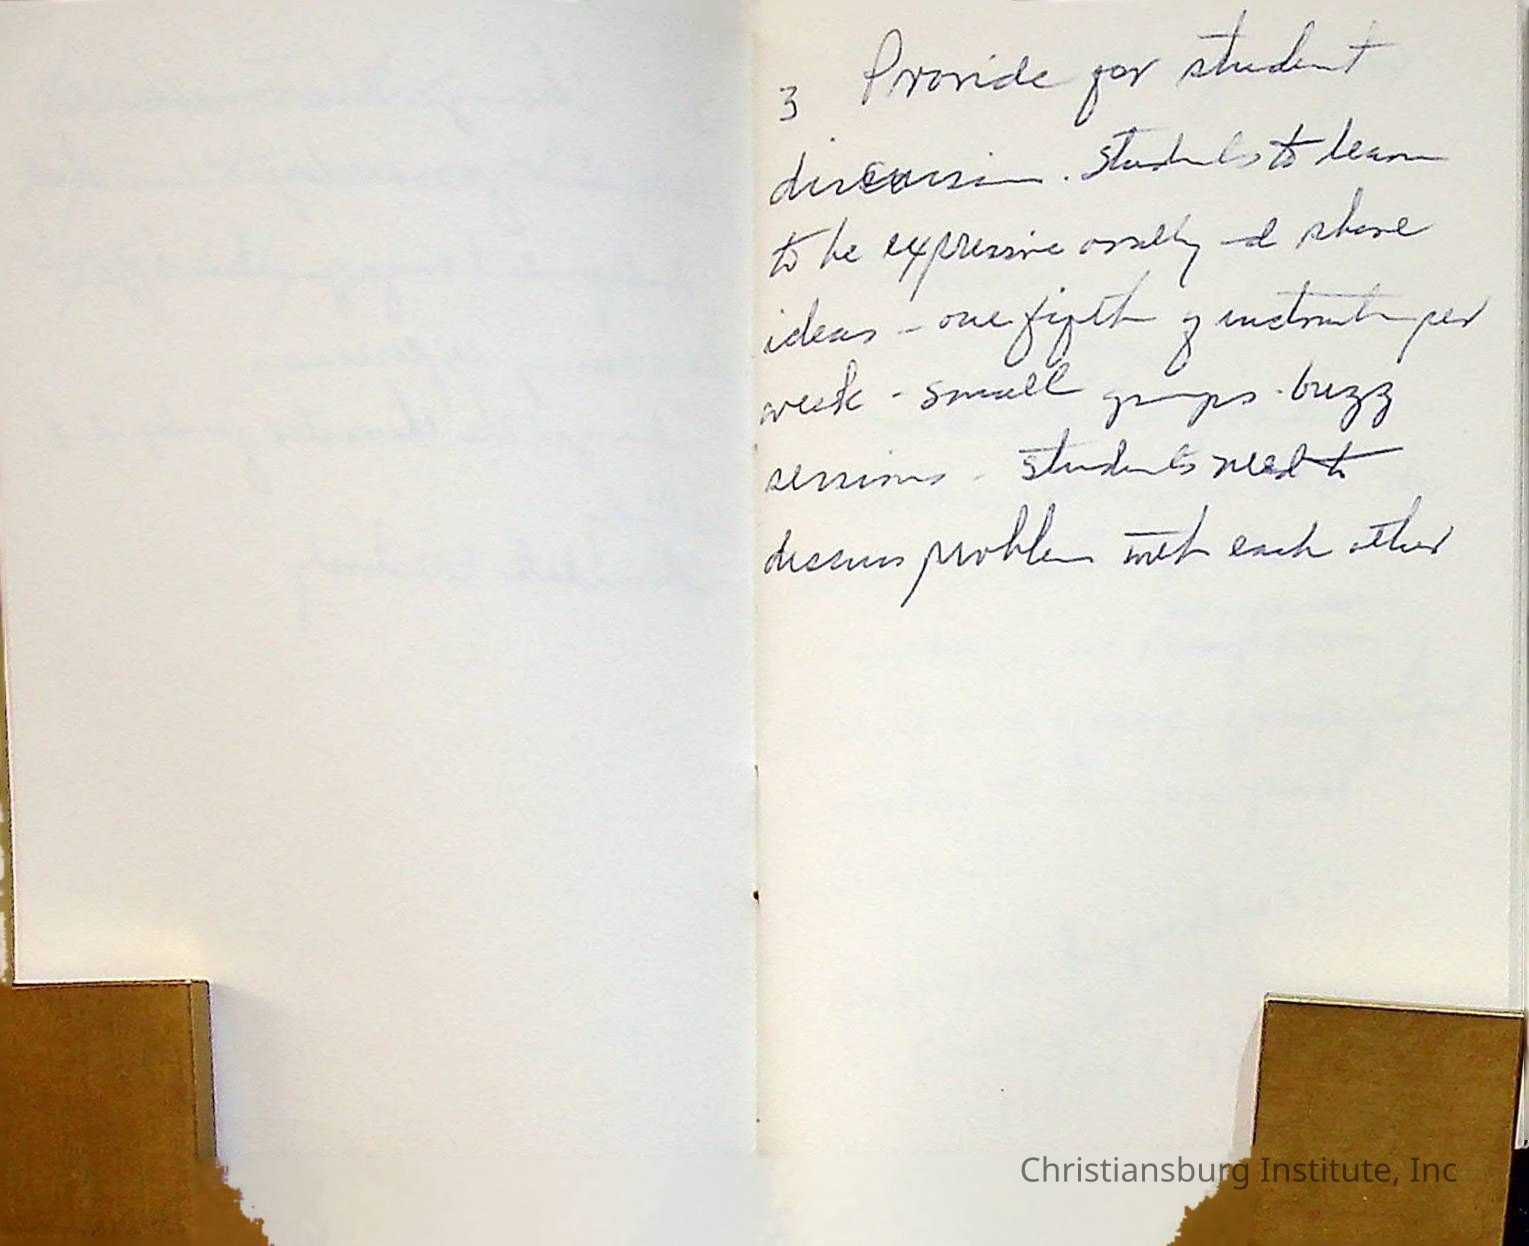 3 Provide for student
discussion. Students to learn
to be expressive orally & share
ideas - one fifth of instruction per
week - small groups - buzz
sessions - students need to
discuss problems with each other
Christiansburg Institute, Inc